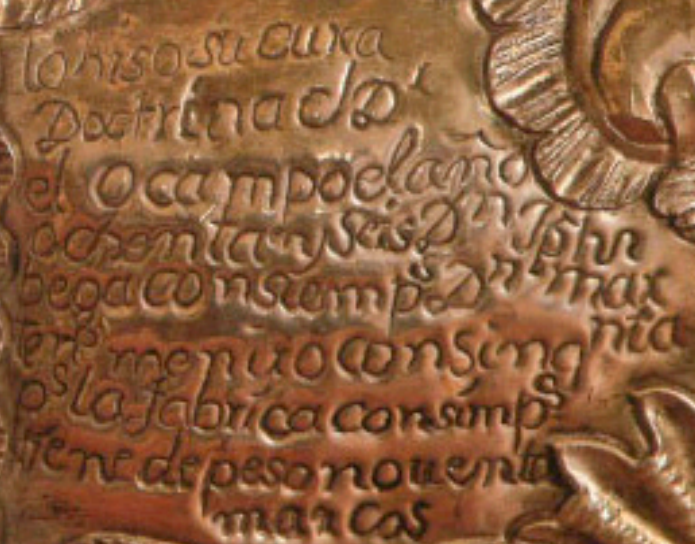 lo hiso su cura
Doctrina d D
el ocampo el año
ochenta y seis Dn Jphn
bega con siemps Dn max
menuo con sinq nta
os la fabrica con simps
tiene de peso nouenta
marcos